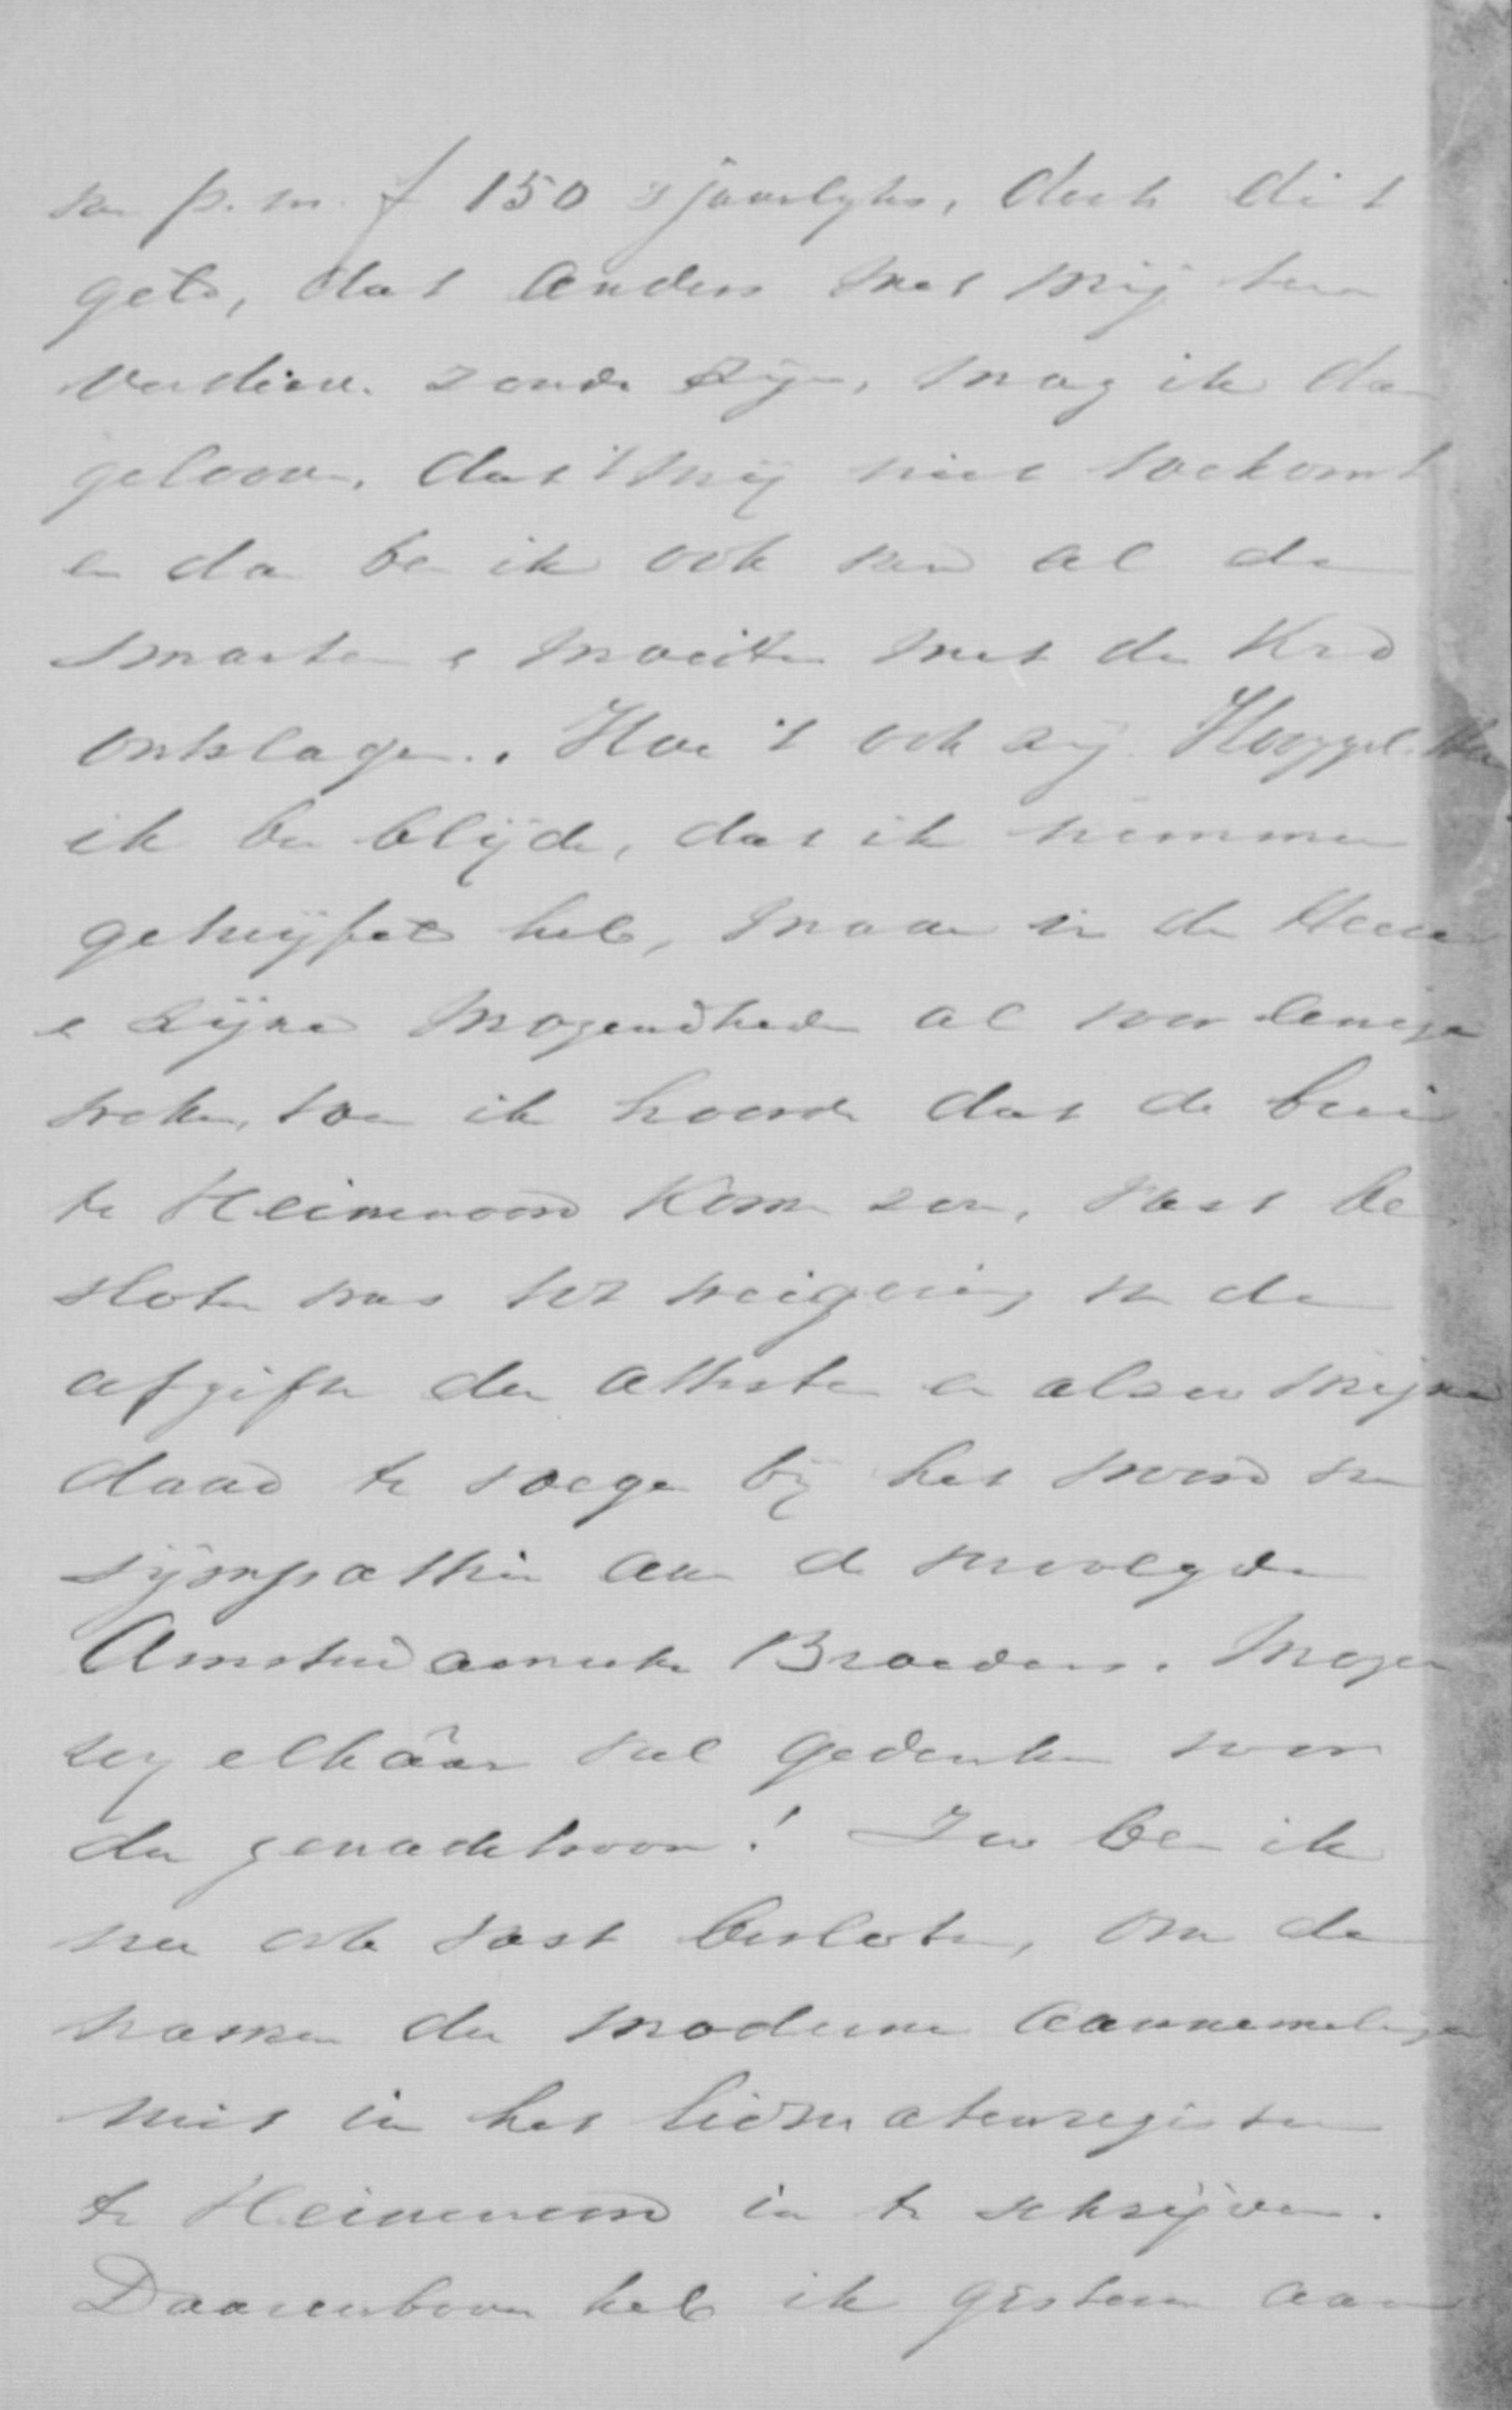 van p. m. f 150 's jaarlyks, doch dit
geld, dat anders met mij ten
verdien. zoude zijn, mag ik dan
gelooven, dat 't mij niet toekomt
en dan ben ik ook van al de
smarten en moeiten met de
ontslagen. Hoe 't ook zij Hooggel. Heer
ik ben blijde, dat ik nimmer
getwijfeld heb, maar in den Heere
en zijne Mogendheden al voor eenige
weken, toen ik hoorde dat de bui
te Heinenoord komen zou, vast be
sloten was tot weigering van de
afgifte der attesten en alzoo mijne
daad te voegen bij het woord van
sympathie aan de vervolgde
Amsterdamsche Broeders. Mogen
wij elkâar veel gedenken voor
den genadetroon! Zoo ben ik
nu ook vast besloten, om de
namen der moderne aannemelingen
niet in het lidmatenregister
te Heinenoord in te schrijven.
Daarenboven heb ik gisteren aan